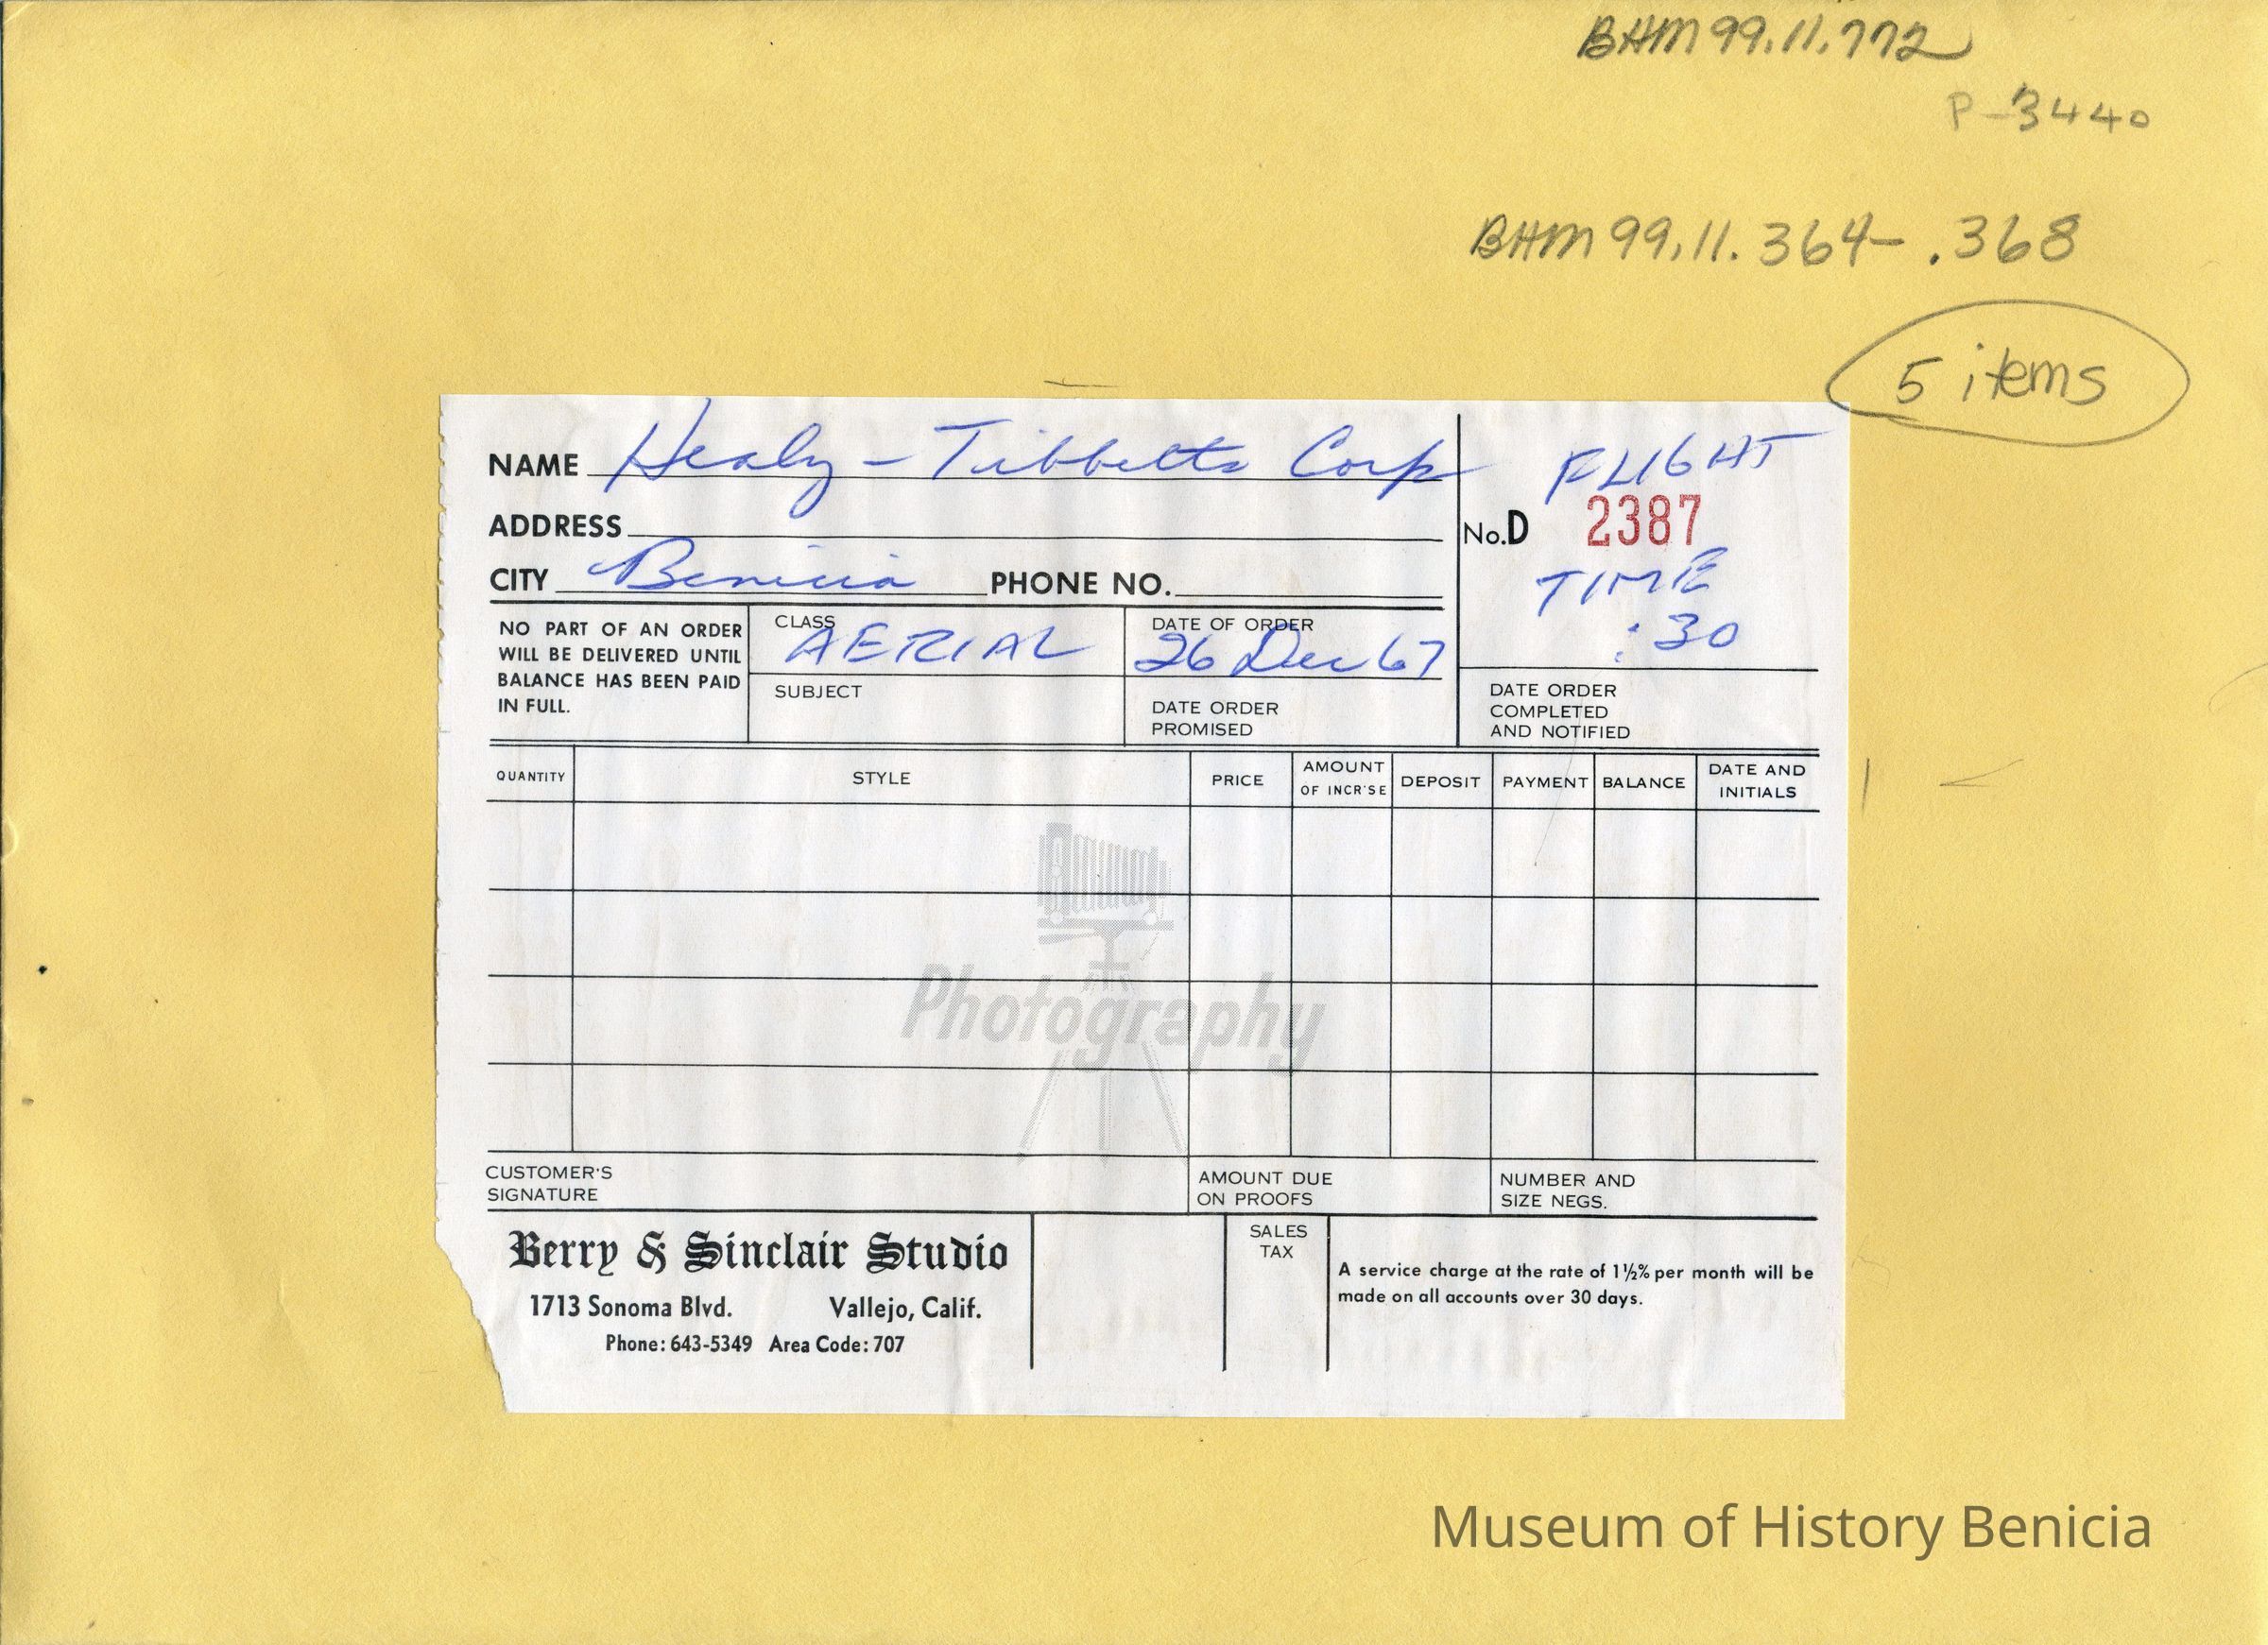 BHM 99.11.772
P-3440
BHM 99.11.364-.368
5 items
NAME Healy-Tibbetts Corp
FLIGHT
ADDRESS
No.D 2387
CITY Benicia PHONE NO.
TIME
:30
NO PART OF AN ORDER
WILL BE DELIVERED UNTIL
BALANCE HAS BEEN PAID
IN FULL.
CLASS
AERIAL
SUBJECT
DATE OF ORDER
26 Dec 67
DATE ORDER
PROMISED
DATE ORDER
COMPLETED
AND NOTIFIED
QUANTITY STYLE PRICE AMOUNT OF INCR'SE DEPOSIT PAYMENT BALANCE DATE AND INITIALS
Photography
CUSTOMER'S
SIGNATURE
AMOUNT DUE
ON PROOFS
NUMBER AND
SIZE NEGS.
Berry & Sinclair Studio
1713 Sonoma Blvd. Vallejo, Calif.
Phone: 643-5349 Area Code: 707
SALES
TAX
A service charge at the rate of 1½% per month will be
made on all accounts over 30 days.
Museum of History Benicia